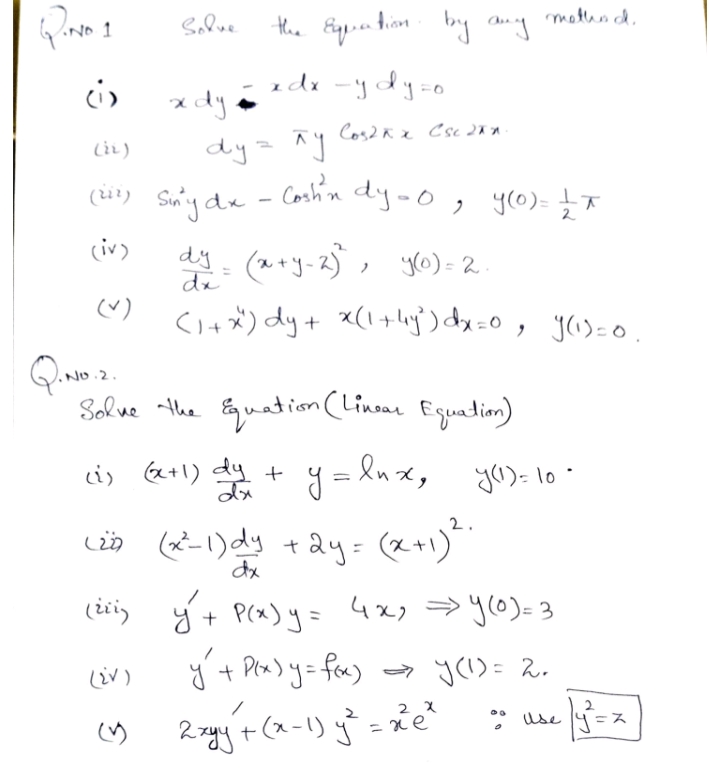 Q.No 1 Solve the Equation by any method.
(i) x dy - x dx - y dy = 0
(ii) dy = πy Cos2πx Csc 2πx.
(iii) Sin²y dx - Cosh²x dy = 0 , y(0) = 1/2 π
(iv) dy/dx = (x+y-2)² , y(0) = 2.
(v) (1+x⁴) dy + x(1+4y²) dx = 0 , y(1) = 0.
Q.No.2.
Solve the Equation (Linear Equation)
(i) (x+1) dy/dx + y = ln x, y(1) = 10 .
(ii) (x²-1) dy/dx + 2y = (x+1)².
(iii) y' + P(x) y = 4x, ⇒ y(0) = 3
(iv) y' + P(x) y = f(x) ⇒ y(1) = 2.
(v) 2xyy' + (x-1) y² = x²eˣ ∵ use y² = z